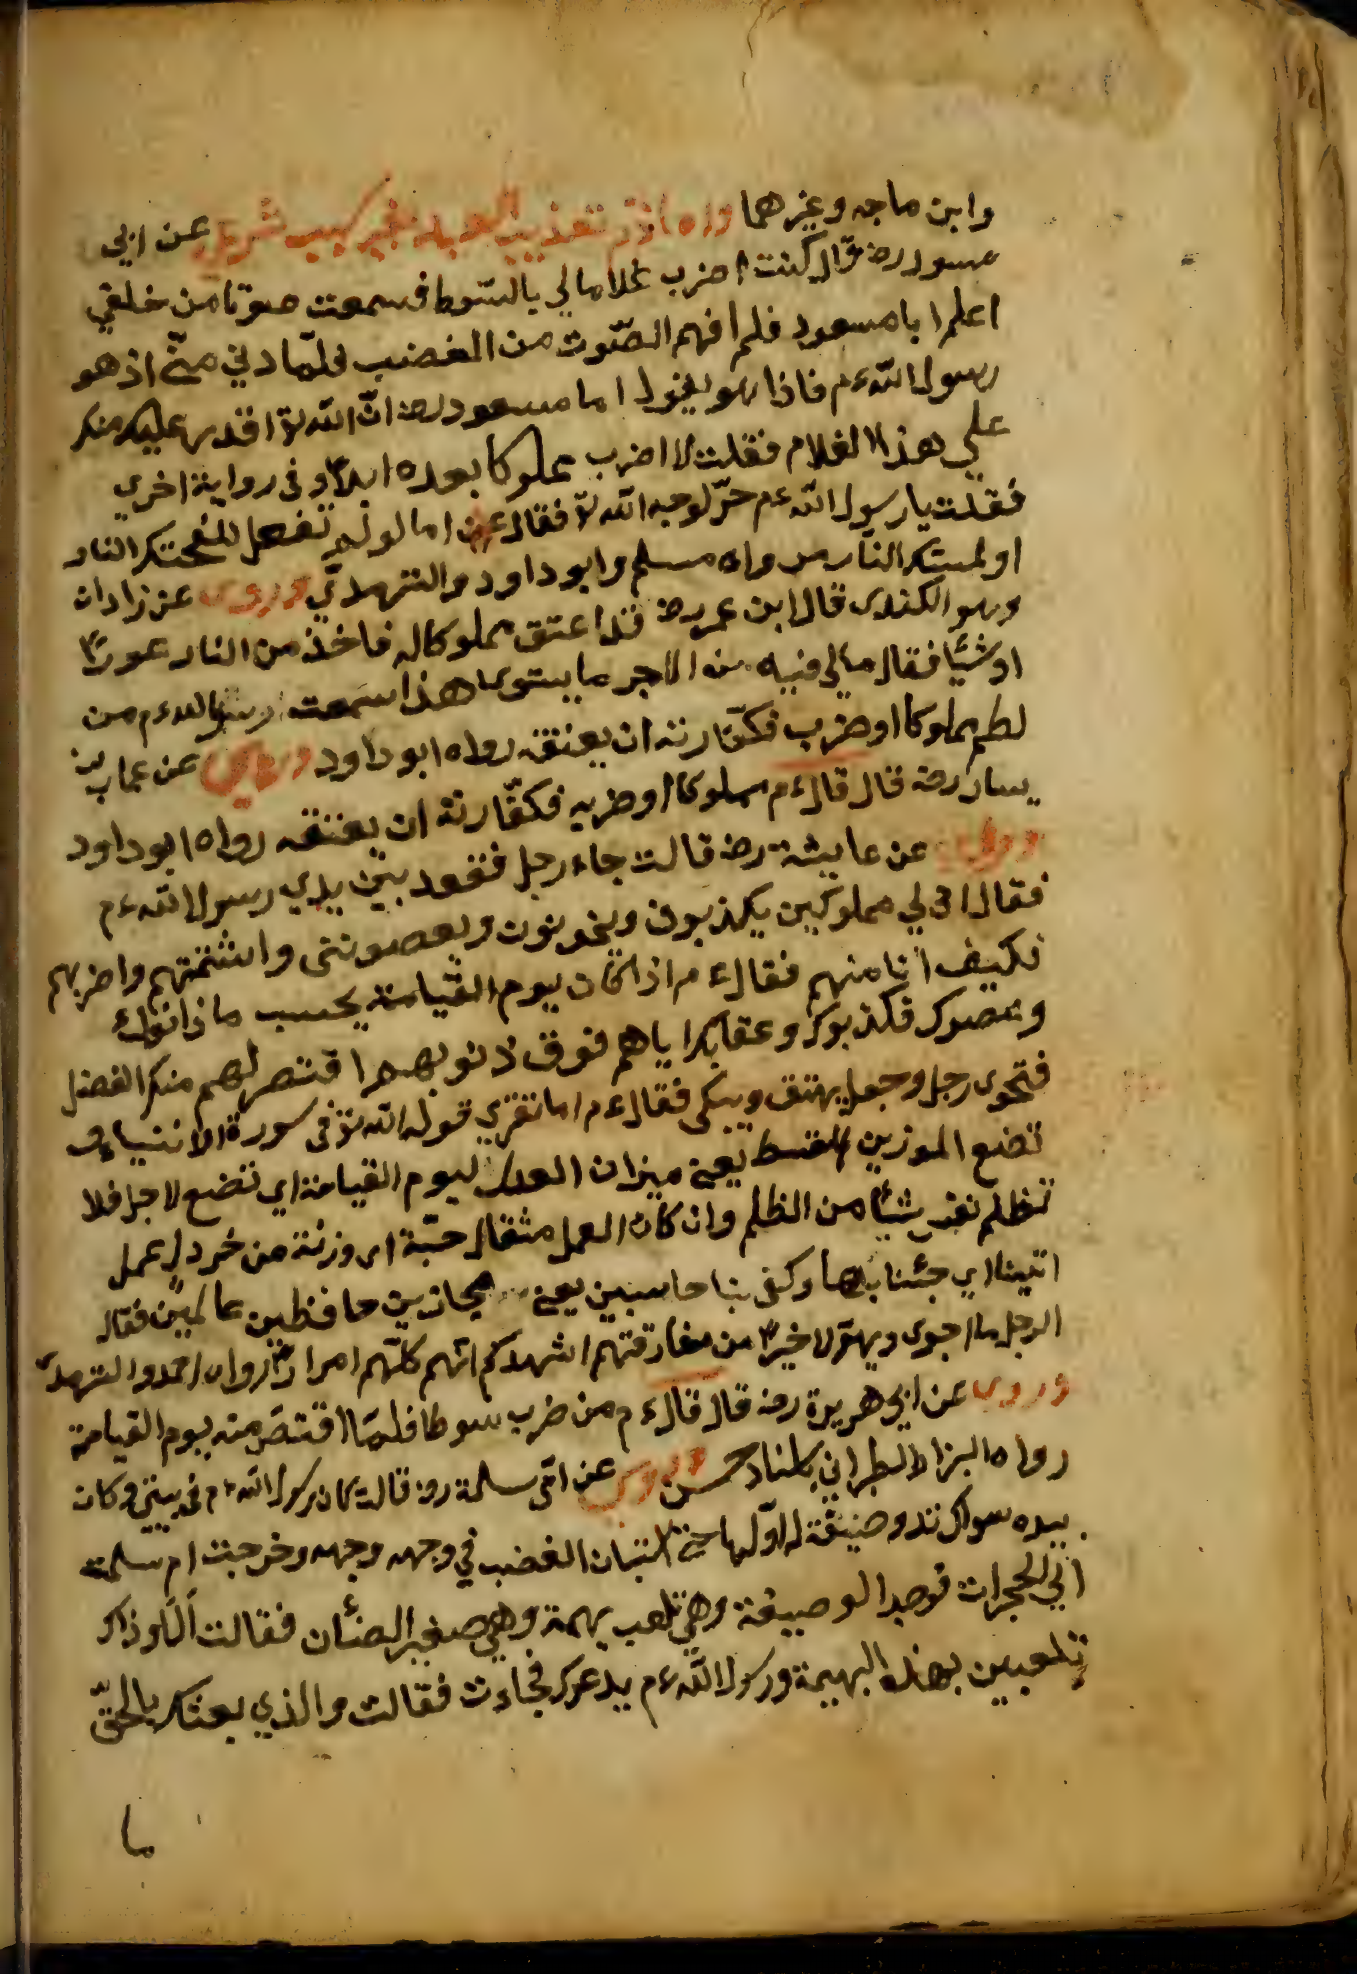 وابن ماجه وغيرهما واما ذم تعذيب العبد بغير سبب شرعي عن ابي
مسعود رضه قال كنت اضرب غلاما لي بالسّوط فسمعت صوتا من خلفي
اعلم ابا مسعود فلم افهم الصّوت من الغضب فلمّا دني منّي اذ هو
رسول اللّه ءم فاذا هو يقول اما مسعود رضه انّ اللّه تع اقدر عليك منك
علي هذا الغلام فقلت لا اضرب مملوكا بعده ابدا وفى رواية اخري
فقلت يا رسول اللّه ءم حرّ لوجه اللّه تع فقال اما لو لم تفعل للفحتك النار
او لمستك النار رواه مسلم وابو داود والترمذي وروى عن زادان
وهو الكندى قال ابن عمر رضه قد اعتق مملوكا له فاخذ من النار عودًا
او شيًا فقال مالي فيه من الاجر ما يستوى هذا سمعت رسول الله ءم من
لطم مملوكا او ضرب فكفّارته ان يعتقه رواه ابو داود وروى عن عمار بن
يسار رضه قال قال ءم مملوكا او ضربه فكفّارته ان يعتقه رواه ابو داود
وروى عن عايشة رضه قالت جاء رجل فقعد بين يدي رسول اللّه ءم
فقال انّ لي مملوكين يكذبون ويخونون ويعصونني واشتمهم واضربهم
فكيف انا منهم فقال ءم اذا كان يوم القيامة يحسب ما ذانوك
وعصوك فكذبوك وعقابك اياهم فوق ذنوبهم اقتصّ لهم منك الفضل
فتحوى رجل وجعل يهتف ويبكى فقال ءم اما تقري قوله اللّه تع فى سورة الانبياء و
نضع الموزين القسط يعني ميزان العدل ليوم القيامة اي نضع لاجل فلا
تظلم نفس شيًا من الظلم وان كان العمل مثقال حبّة اى وزنة من خردل عمل
اتينا اي جئنا بها وكفى بنا حاسبين يعني مجازين حافظين عالمين فقال
الرجل ما اجوى ويهؤلا خيرًا من مفارقتهم اشهدكم انّهم كلّهم احرارًا رواه احمد والترمذى
وروى عن ابي هريرة رضه قال قال ءم من ضرب سوطا ظلمًا اقتصّ منه يوم القيامة
رواه البزار الطبراني باسناد حسن وروى عن امّ سلمة رضه قالت كان رسول اللّه ءم فى بيتي وكان
بيده سواك فدعا وصيفة له او لها حتى استبان الغضب في وجهه وجهه وخرجت ام سلمة
الي الحجرات فوجد الوصيفة وهى تلعب بهمة وهى صغير الضئان فقالت الا اراك
تلعبين بهذه البهيمة ورسول اللّه ءم يدعوك فجاءت فقالت والذي بعثك بالحقّ
ما